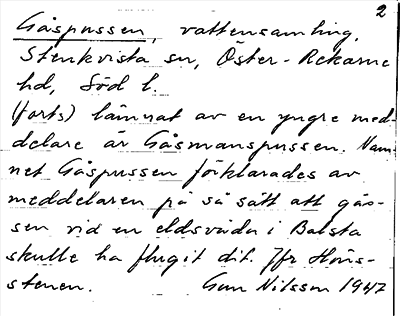 2
Gåspussen, vattensamling,
Stenkvista sn, Öster-Rekarne
hd, Söd l.
(forts) lämnat av en yngre med-
delare är Gåsmanspussen. Nam-
net Gåspussen förklarades av
meddelaren på så sätt att gås-
sen vid en eldsvåda i Balsta
skulle ha flugit dit. Jfr Höns-
stenen. Gun Nilsson 1947